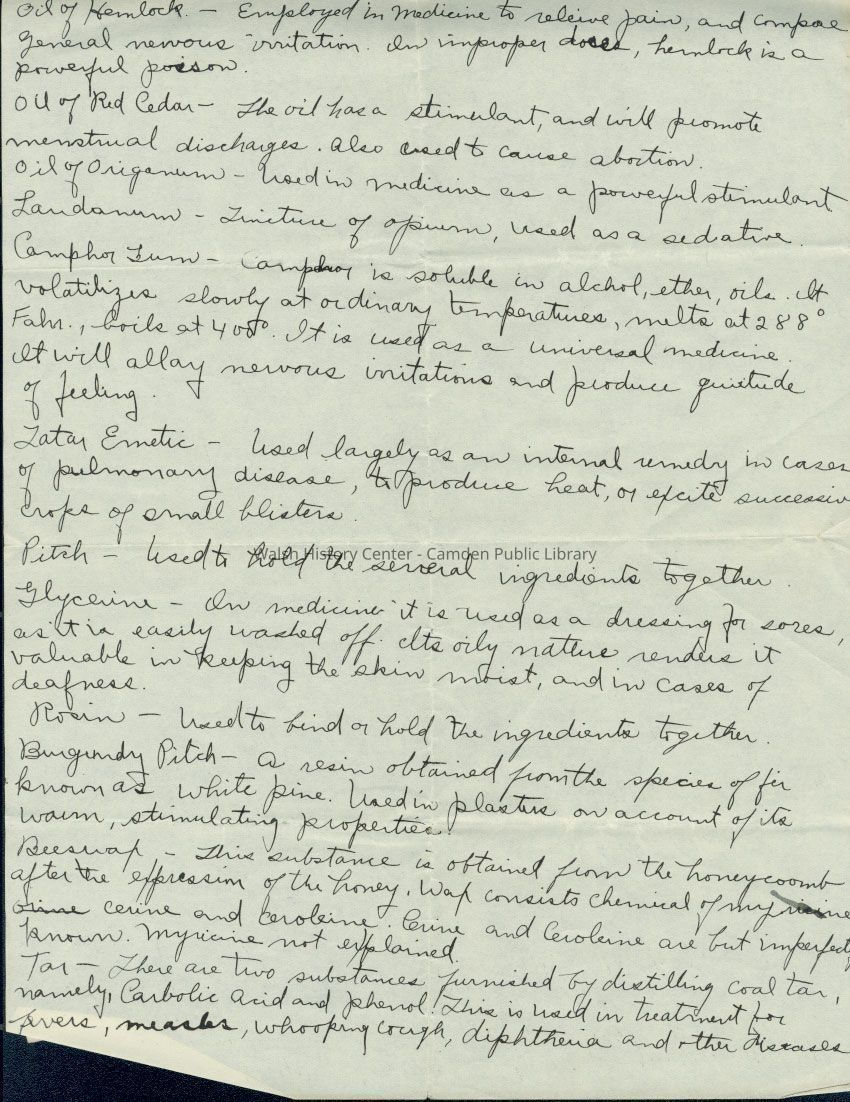 Oil of Hemlock. - Employed in medicine to releive pain, and compose
general nervous irritation. In improper doses, hemlock is a
powerful poison.
Oil of Red Cedar - The oil has a stimulant, and will promote
menstrual discharges. Also used to cause abortion.
Oil of Origanum - Used in medicine as a powerful stimulant.
Laudanum - Tincture of opium, used as a sedative.
Camphor Gum - Camphor is soluble in alchol, ether, oils. It
volatilizes slowly at ordinary temperatures, melts at 288°
Fahr., boils at 400°. It is used as a universal medicine.
It will allay nervous irritations and produce quietude
of feeling.
Tatar Emetic - Used largely as an internal remedy in cases
of pulmonary disease, to produce heat, or excite successiv
crops of small blisters.
Pitch - Used to hold the several ingredients together.
Walsh History Center - Camden Public Library
Glycerine - In medicine it is used as a dressing for sores,
as it is easily washed off. Its oily nature renders it
valuable in keeping the skin moist, and in cases of
deafness.
Rosin - Used to bind or hold the ingredients together.
Burgundy Pitch - A resin obtained from the species of fir
known as white pine. Used in plasters on account of its
warm, stimulating properties.
Beeswax - This substance is obtained from the honeycoomb
after the expression of the honey. Wax consists chemical of myricine
cerine and ceroleine. Cerine and Ceroleine are but imperfectly
known. Myricine not explained.
Tar - There are two substances furnished by distilling coal tar,
namely, Carbolic Acid and phenol. This is used in treatment for
fevers, measles, whooping cough, diphtheria and other diseases